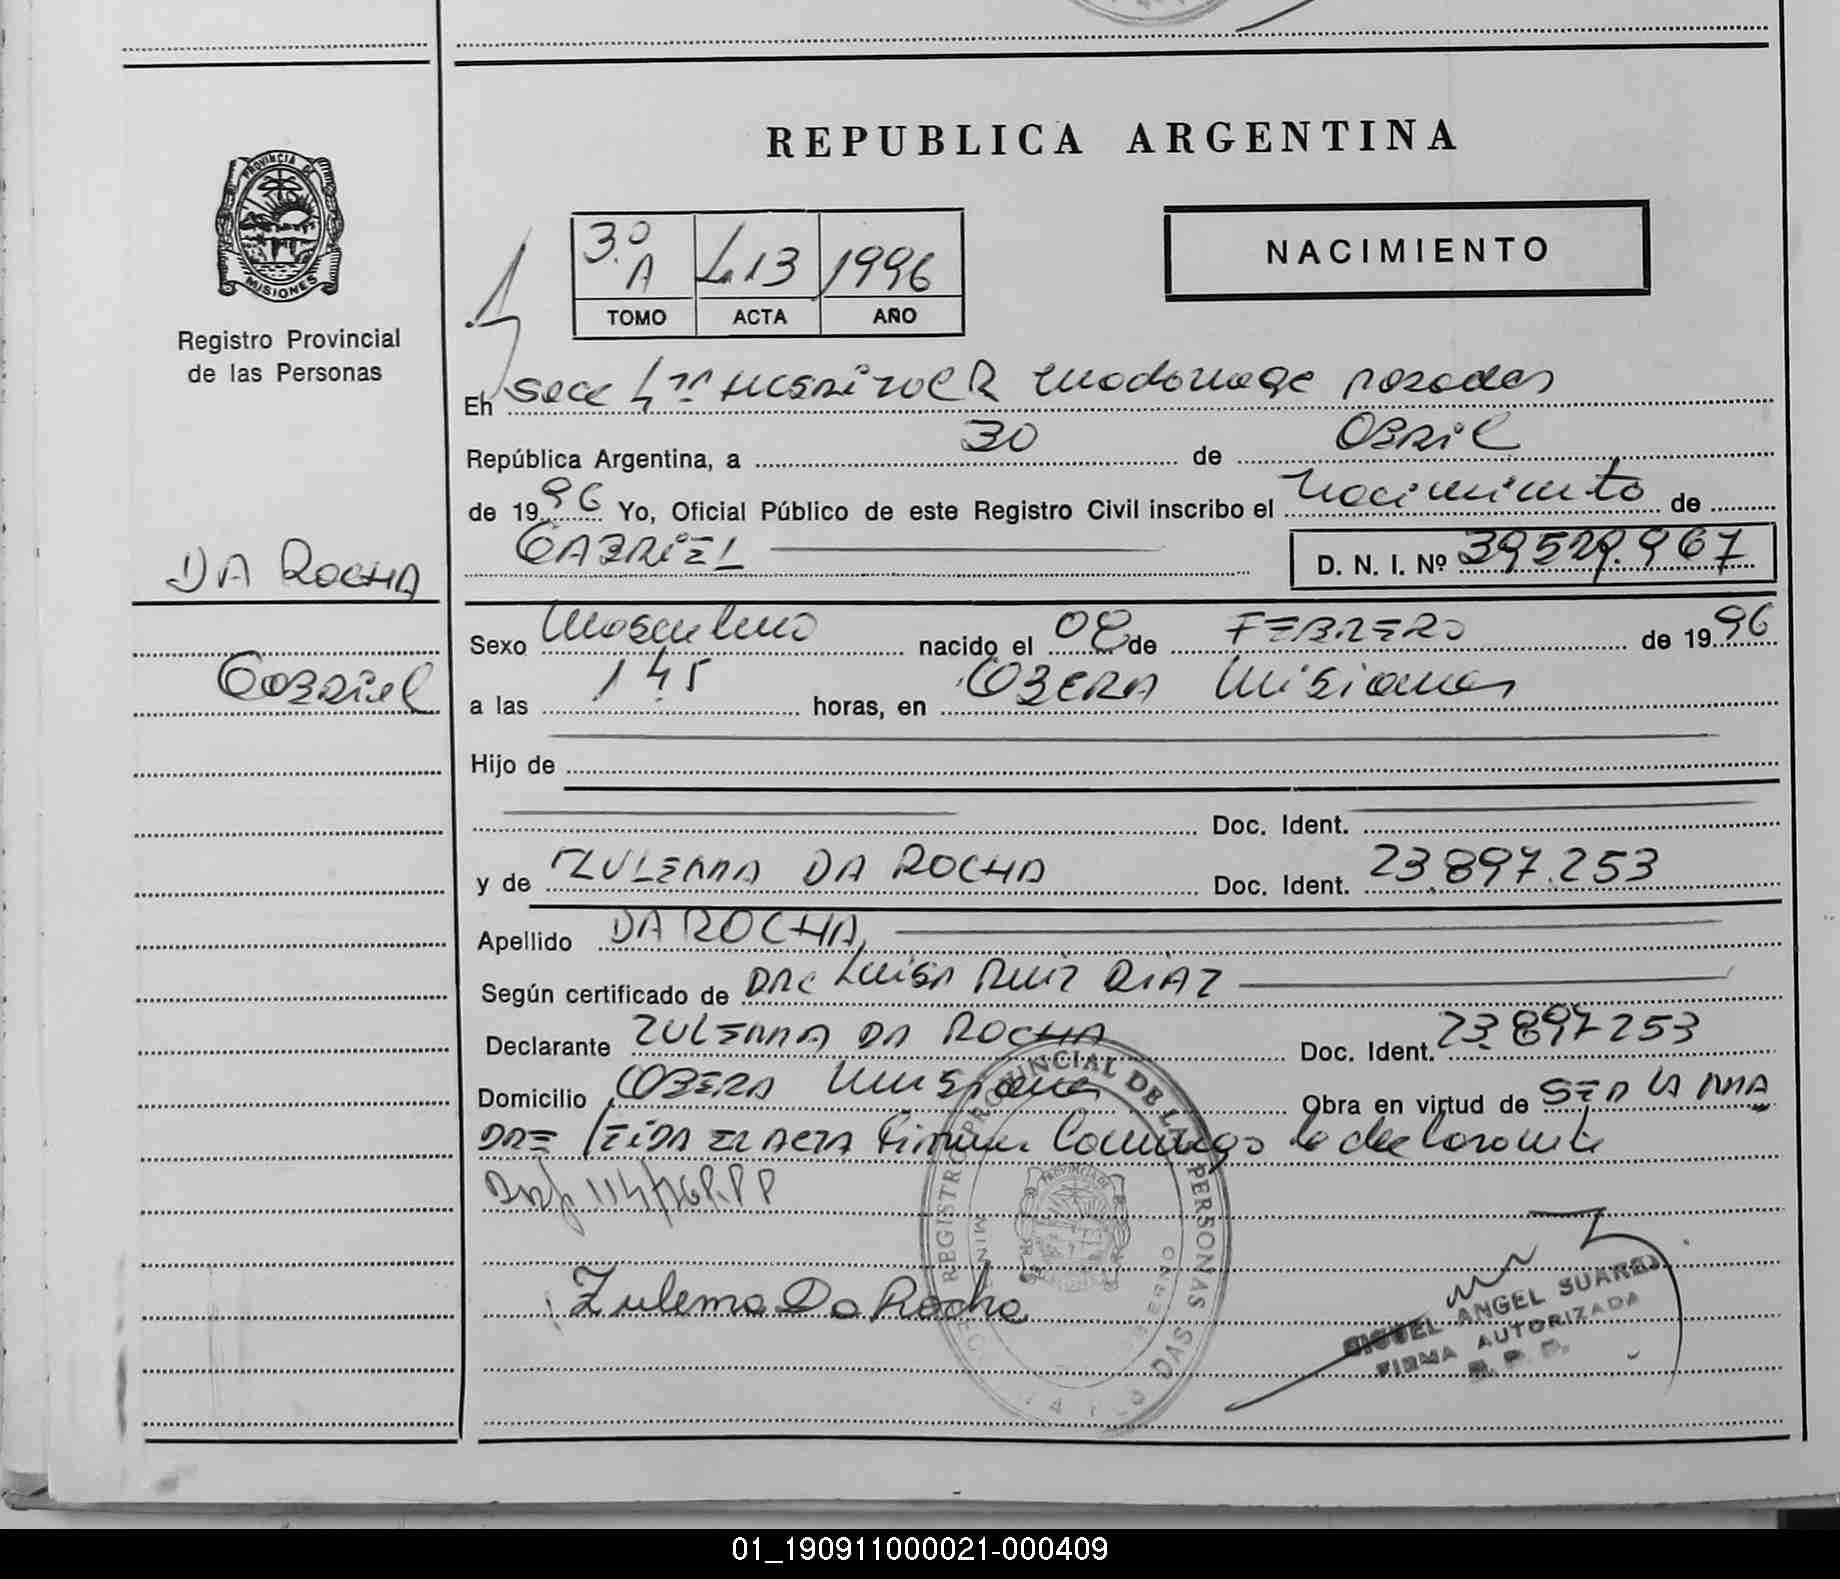 REPUBLICA ARGENTINA
PROVINCIA DE
MISIONES
Registro Provincial
de las Personas
3º A
1996
TOMO ACTA AÑO
NACIMIENTO
En Secc posadas
República Argentina, a 30 de Abril
de 1996 Yo, Oficial Público de este Registro Civil inscribo el Nacimiento de
GABRIEL
D. N. I. Nº 39529.967
DA ROCHA
Gabriel
Sexo Masculino nacido el 08 de FEBRERO de 1996
a las 1 45 horas, en OBERA Misiones
Hijo de
Doc. Ident.
y de ZULEMA DA ROCHA Doc. Ident. 23.897.253
Apellido DA ROCHA
Según certificado de DRA Luisa Ruiz DIAZ
Declarante ZULEMA DA ROCHA Doc. Ident. 23.897253
Domicilio OBERA Misiones Obra en virtud de SER LA MA
DRE LEIDA EL ACTA Firman Conmigo la declarante
Zulema Da Rocha
REGISTRO PROVINCIAL DE LAS PERSONAS
MIGUEL ANGEL SUAREZ
FIRMA AUTORIZADA
R. P. P.
01_190911000021-000409